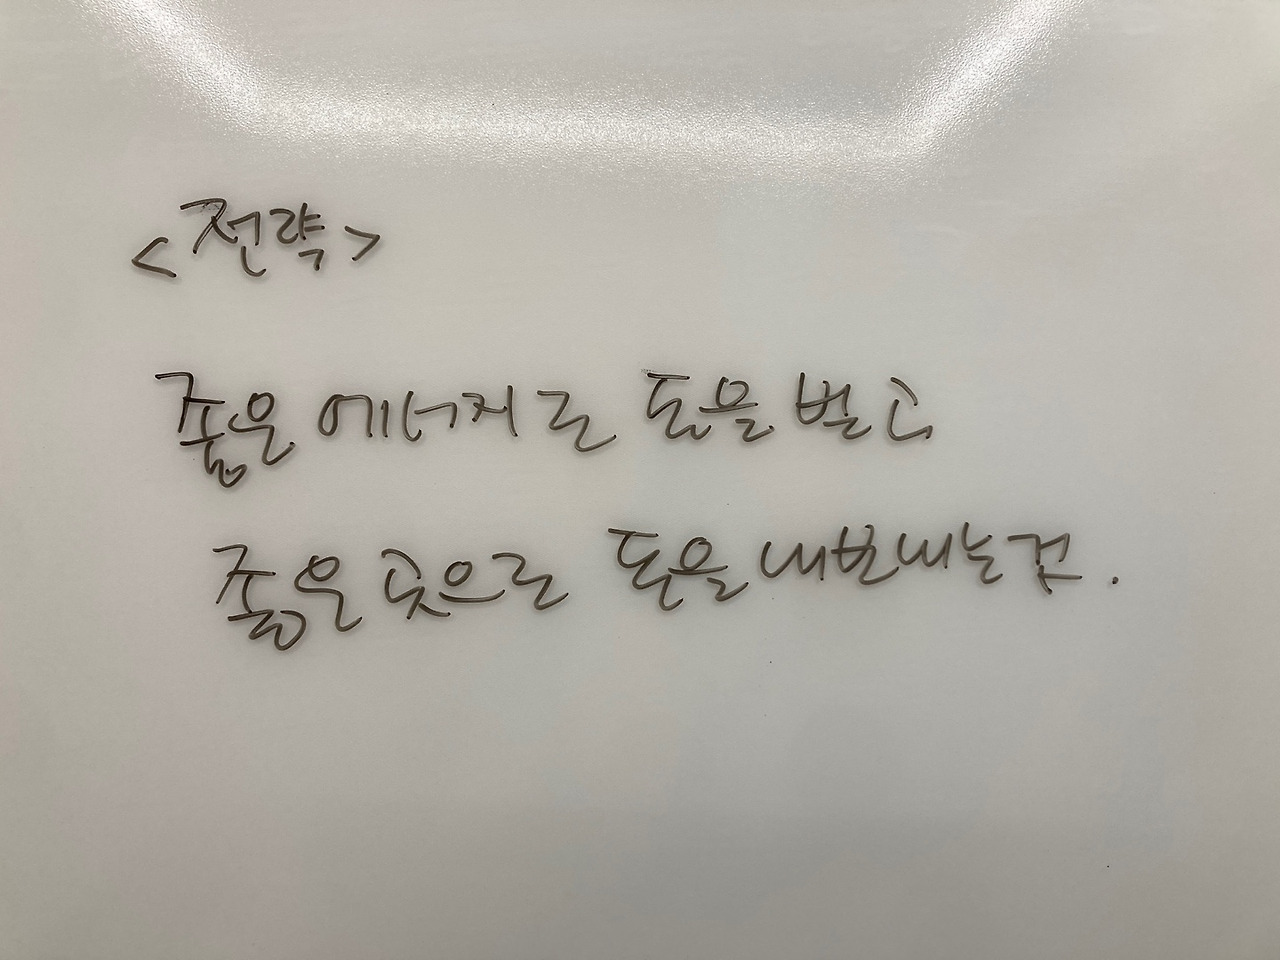 <전략>
좋은 에너지로 돈을 벌고
좋은 곳으로 돈을 내보내는 것.